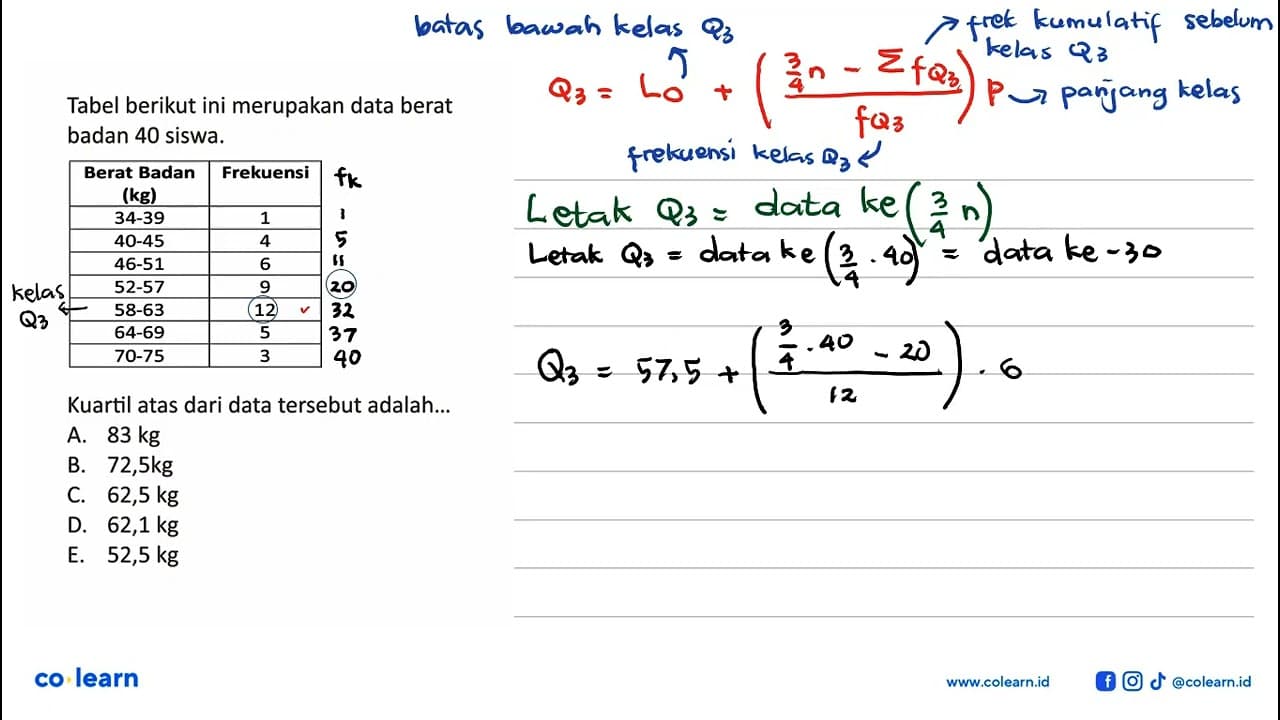 batas bawah kelas Q3
frek kumulatif sebelum
kelas Q3
Q3 = Lo + (3/4 n - Σ fQ3 / fQ3) P → panjang kelas
frekuensi kelas Q3
Tabel berikut ini merupakan data berat
badan 40 siswa.
Berat Badan (kg) Frekuensi fk
34-39 1 1
40-45 4 5
46-51 6 11
52-57 9 20
58-63 12 ✓ 32
64-69 5 37
70-75 3 40
kelas
Q3
Letak Q3 = data ke (3/4 n)
Letak Q3 = data ke (3/4 . 40) = data ke - 30
Q3 = 57,5 + (3/4 . 40 - 20 / 12) . 6
Kuartil atas dari data tersebut adalah...
A. 83 kg
B. 72,5kg
C. 62,5 kg
D. 62,1 kg
E. 52,5 kg
co learn
www.colearn.id
@colearn.id